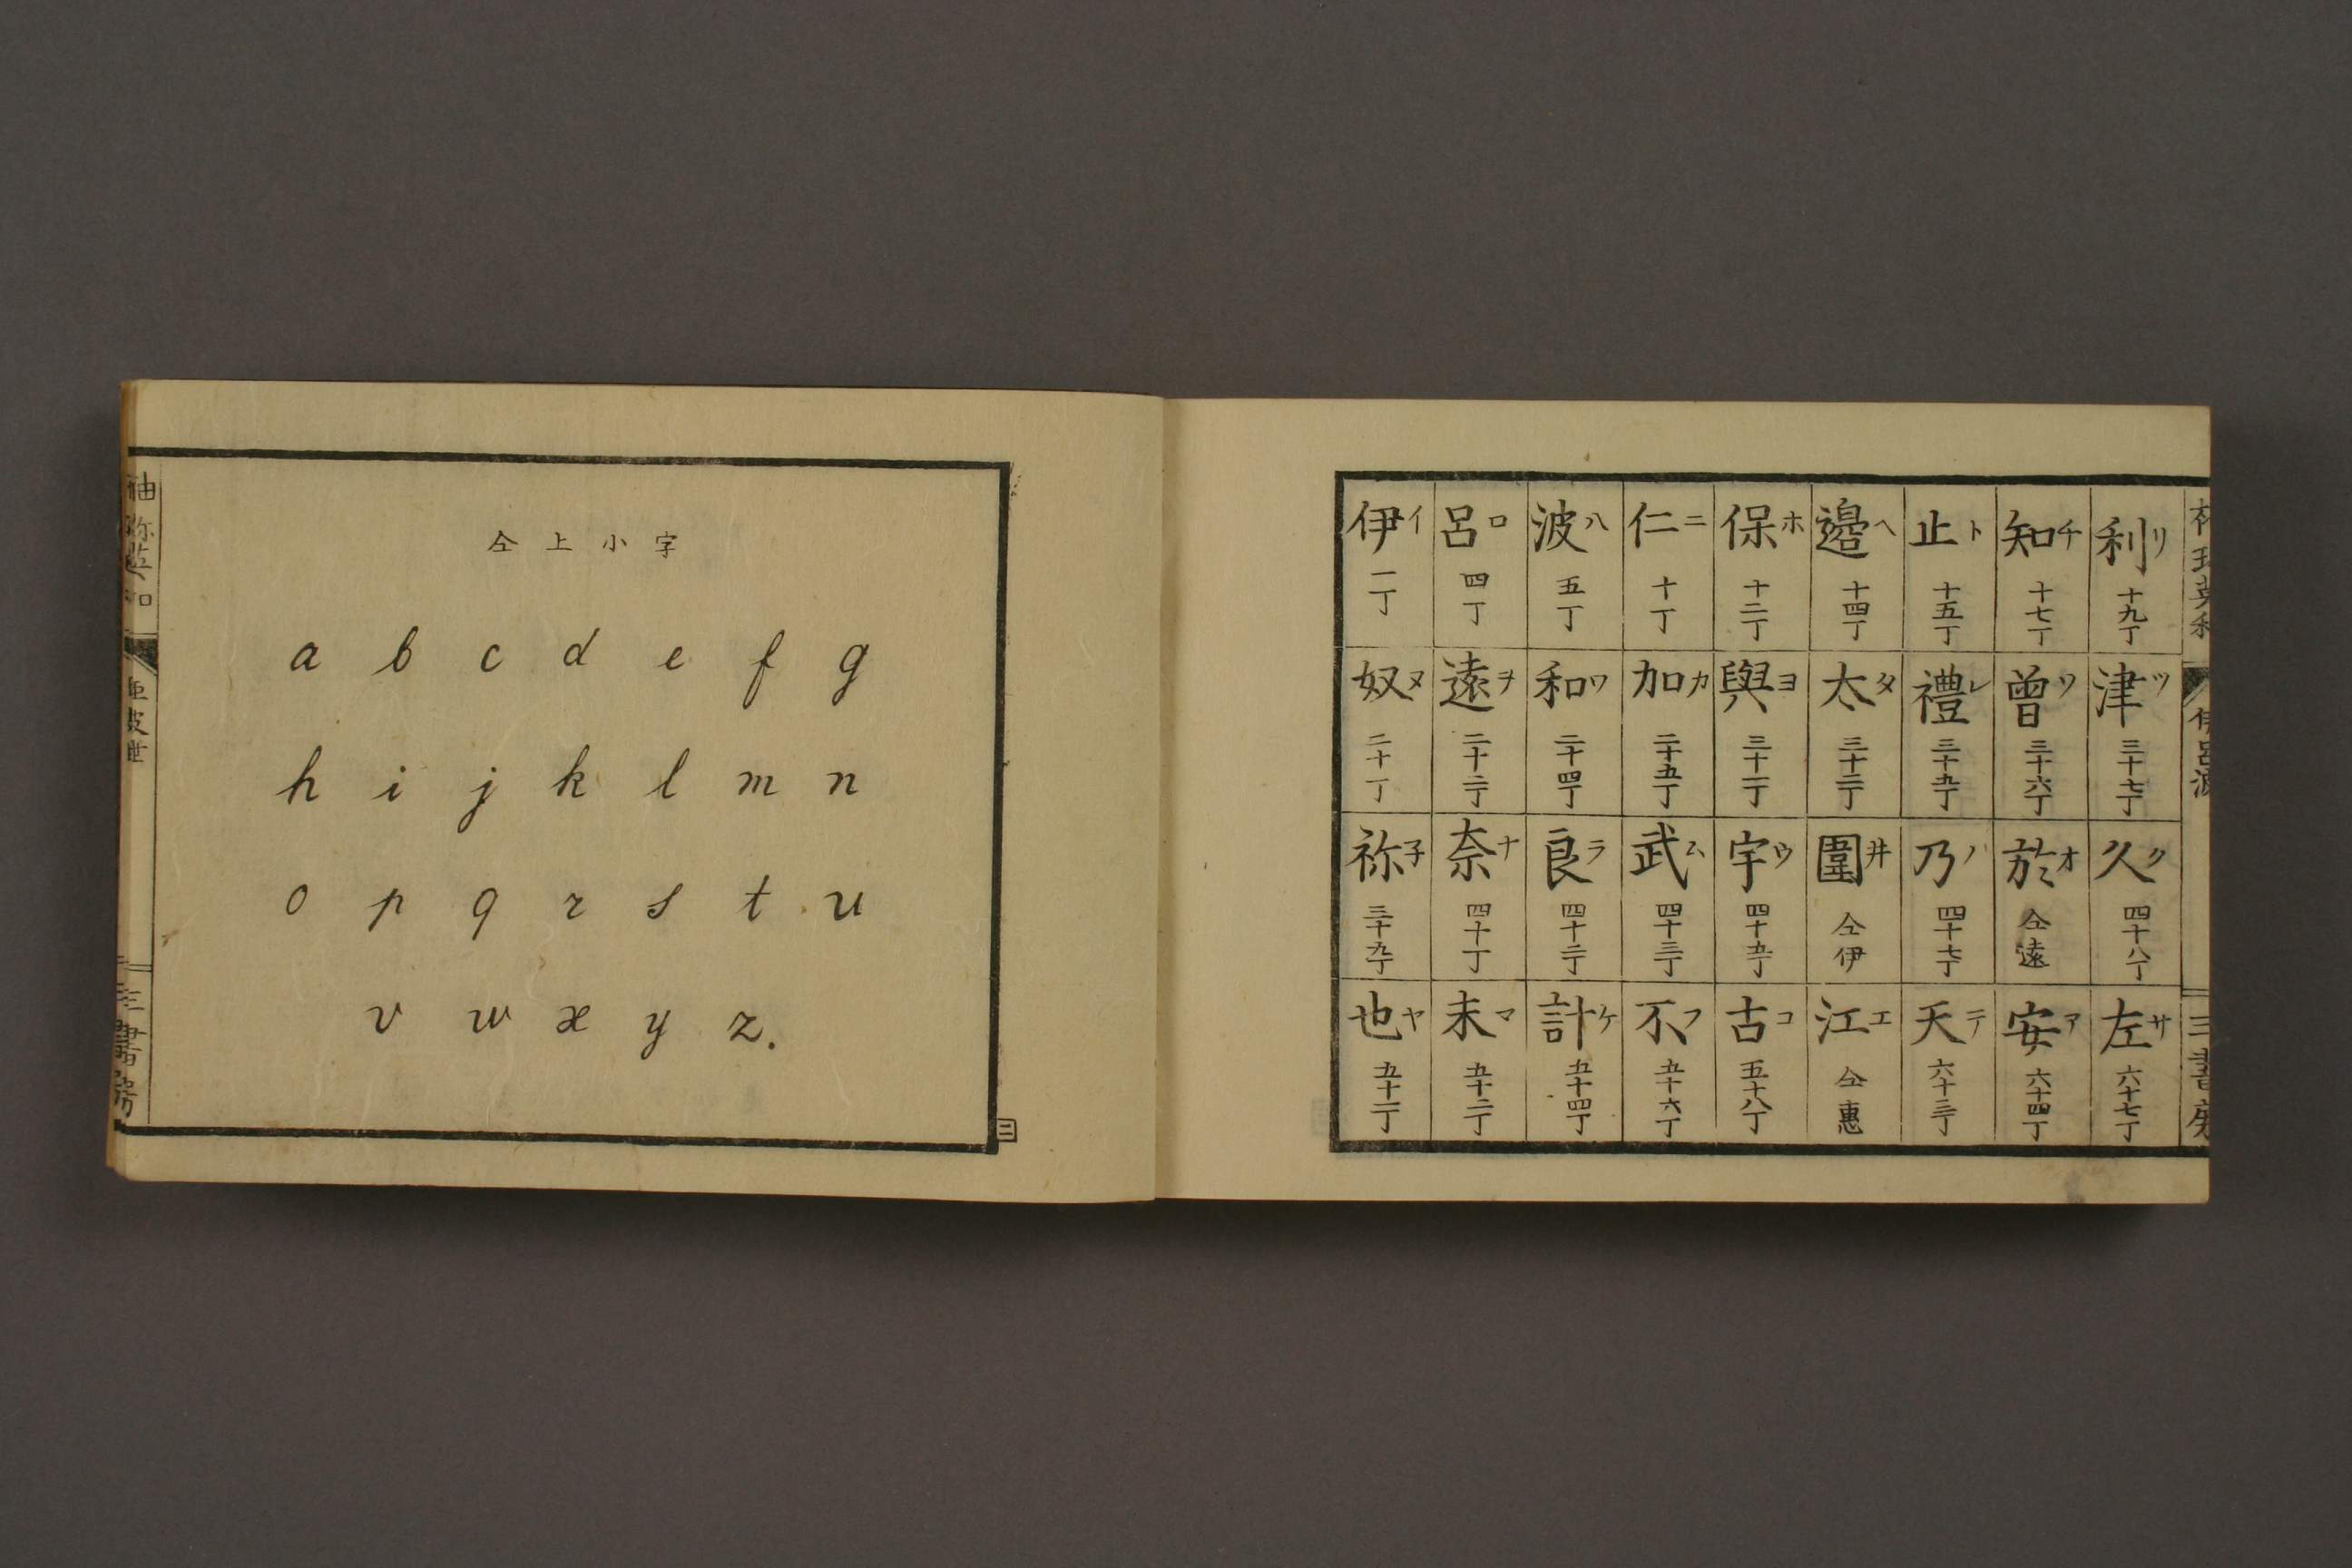 仝上小字
a b c d e f g
h i j k l m n
o p q r s t u
v w x y z.
二
袖珍英和
三書房
伊イ 呂ロ 波ハ 仁ニ 保ホ 邊ヘ 止ト 知チ 利リ
一丁 四丁 五丁 十丁 十二丁 十四丁 十五丁 十七丁 十九丁
奴ヌ 遠ヲ 和ワ 加カ 與ヨ 太タ 禮レ 曽ソ 津ツ
二十丁 二十二丁 二十四丁 二十五丁 三十一丁 三十二丁 三十五丁 三十六丁 三十七丁
祢子 奈ナ 良ラ 武ム 宇ウ 圍井 乃ノ 於オ 久ク
三十九丁 四十丁 四十二丁 四十三丁 四十五丁 仝伊 四十七丁 仝遠 四十八丁
也ヤ 末マ 計ケ 不フ 古コ 江エ 天テ 安ア 左サ
五十一丁 五十二丁 五十四丁 五十六丁 五十八丁 仝惠 六十三丁 六十四丁 六十七丁
袖珍英和
伊呂波
三書房